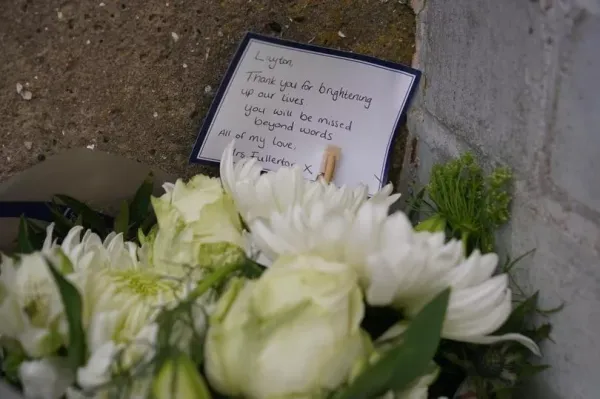 Layton,
Thank you for brightening
up our lives
you will be missed
beyond words
All of my love,
Mrs Fullerton X